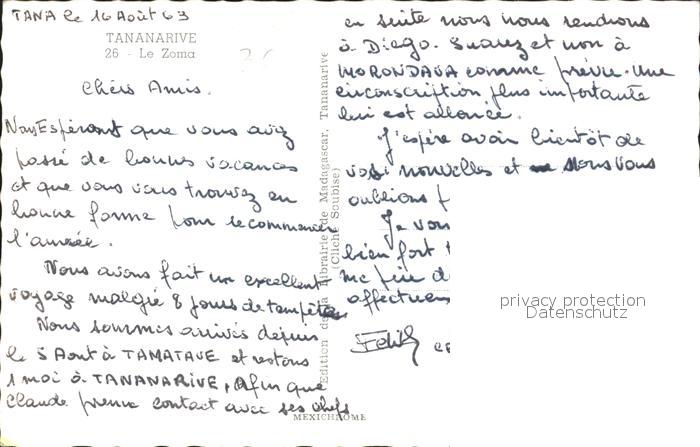 TANA le 16 Août 63
TANANARIVE
26 - Le Zoma
Chers Amis.
Nous Espérons que vous avez
passé de bonnes vacances
et que vous vous trouvez en
bonne forme pour recommencer
l'année.
Nous avons fait un excellent
voyage malgré 8 jours de tempêtes
Nous sommes arrivés depuis
le 5 Aout à TAMATAVE et restons
1 moi à TANANARIVE, Afin que
Claude prenne contact avec ses chefs
Edition de la Librairie de Madagascar, Tananarive
(Cliché Soubise)
MEXICHROME
en suite nous nous rendrons
à Diego. Suarez et non à
MORONDAVA comme prévu. Une
circonscription plus importante
lui est allouée.
J'espère avoir bientôt de
vos nouvelles et Nous Vous
oublions
Je vous
bien fort
me
affectueu
privacy protection
Datenschutz